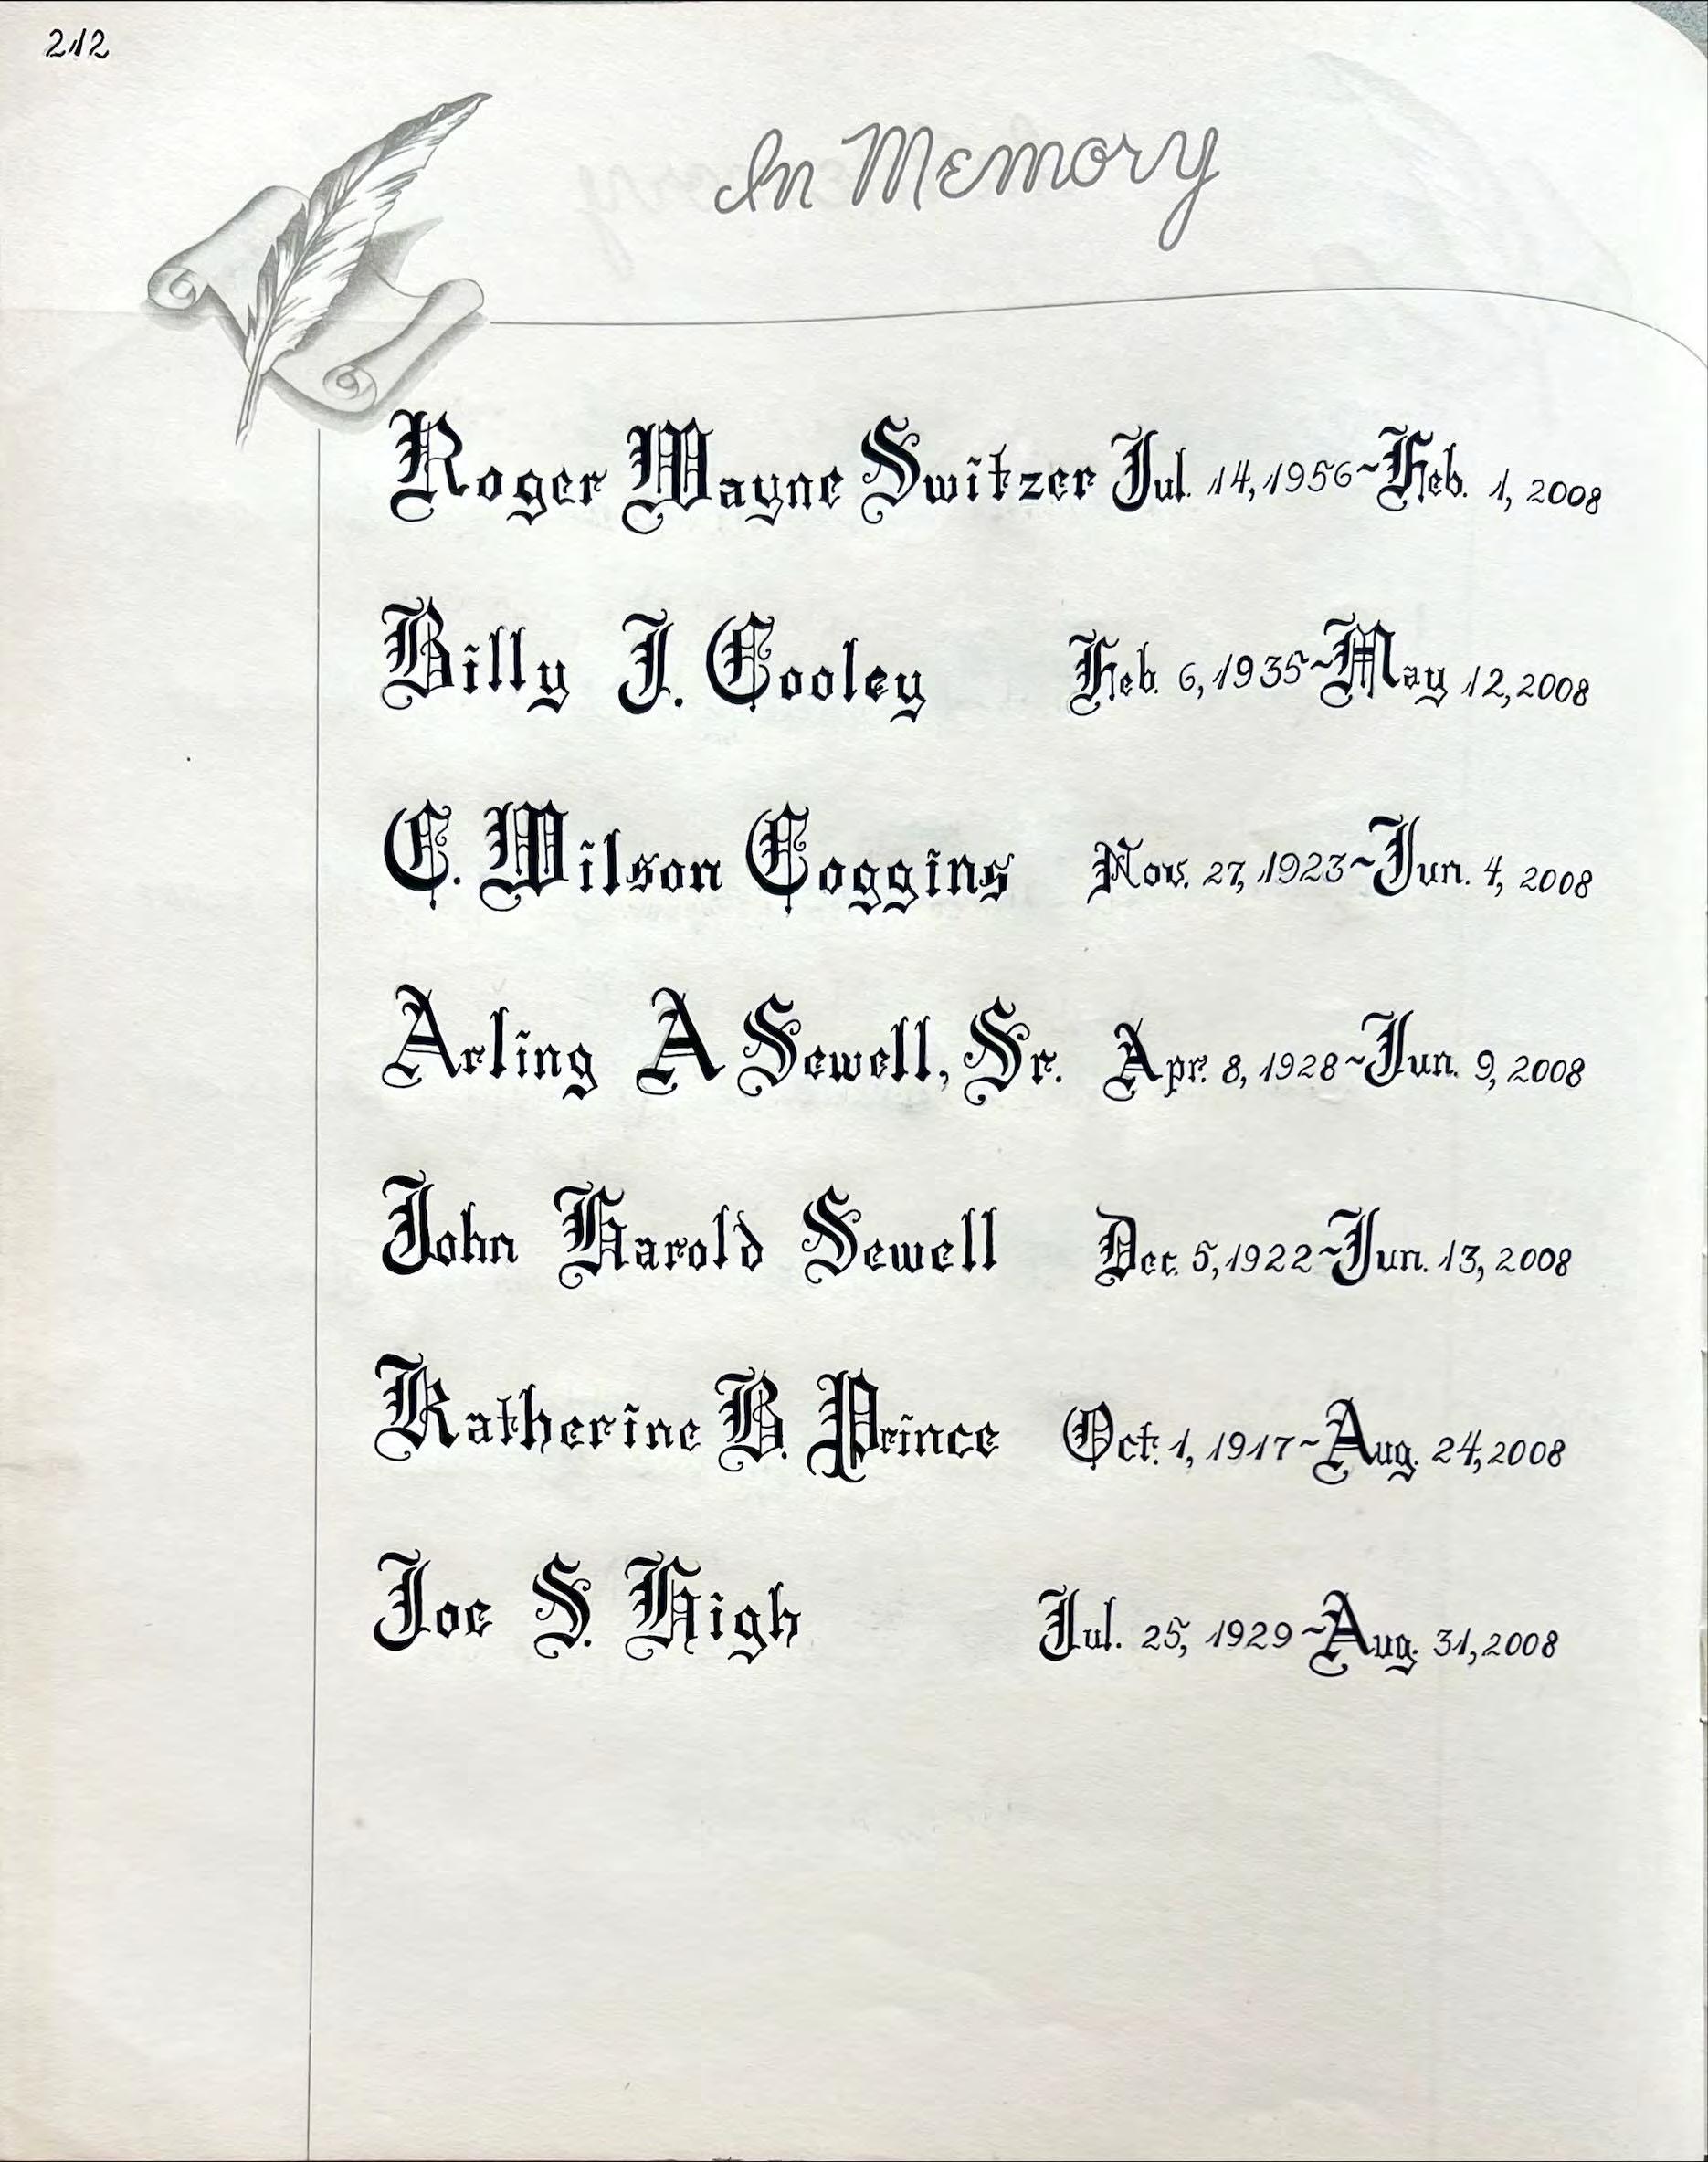 212
In Memory
Roger Wayne Switzer Jul. 14, 1956~Feb. 1, 2008
Billy J. Cooley Feb. 6, 1935~May 12, 2008
C. Wilson Coggins Nov. 27, 1923~Jun. 4, 2008
Arling A Sewell, Sr. Apr. 8, 1928~Jun. 9, 2008
John Harold Sewell Dec. 5, 1922~Jun. 13, 2008
Katherine B. Prince Oct. 1, 1917~Aug. 24, 2008
Joe S. High Jul. 25, 1929~Aug. 31, 2008